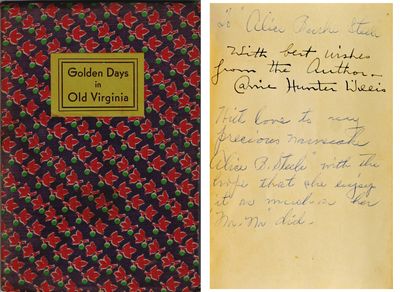 Golden Days
in
Old Virginia
To Alice
With best wishes
from the Author_
Carrie Hunter Willis
love to my
precious namesake
Alice P. Steele with the
hope that she enjoys
it as much as her
did.